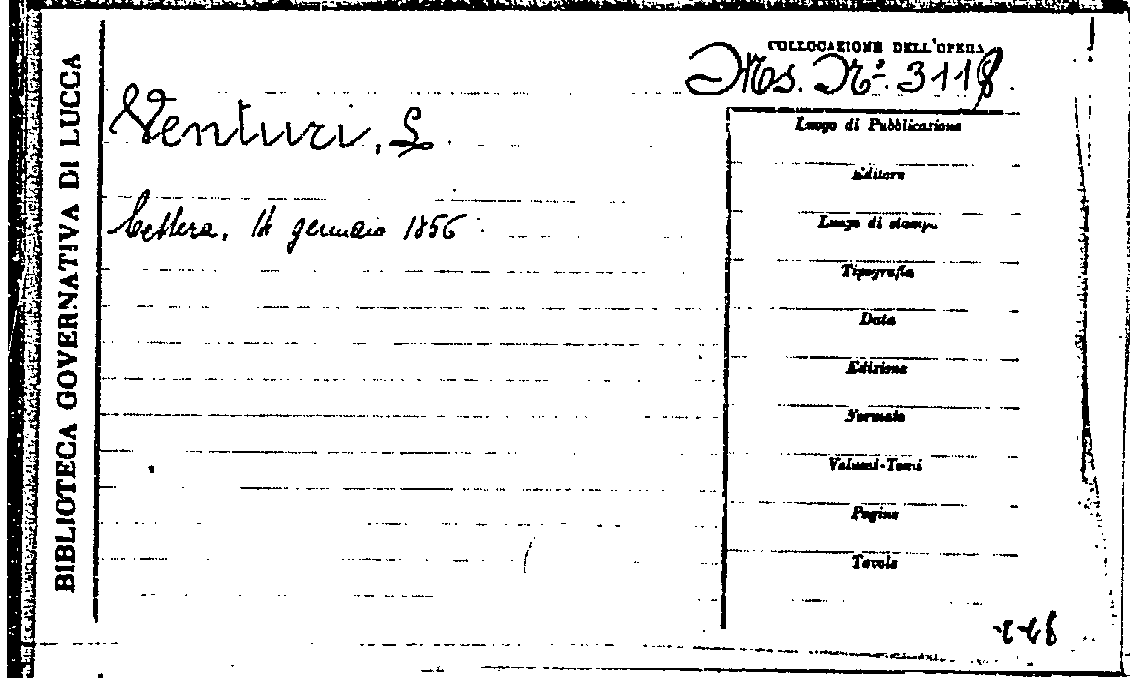 BIBLIOTECA GOVERNATIVA DI LUCCA
COLLOCAZIONE DELL'OPERA
Ms. N.º 3118.
Venturi, L.
Lettera, 14 gennaio 1856.
Luogo di Pubblicazione
Editore
Luogo di stampa
Tipografia
Data
Edizione
Formato
Volumi-Tomi
Pagine
Tavole